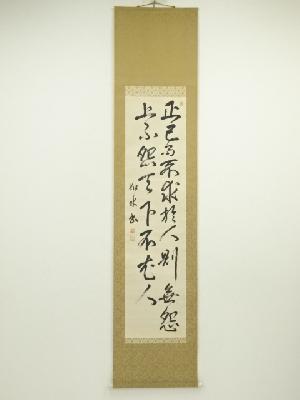 正己而不求於人則無怨
上不怨天下不尤人